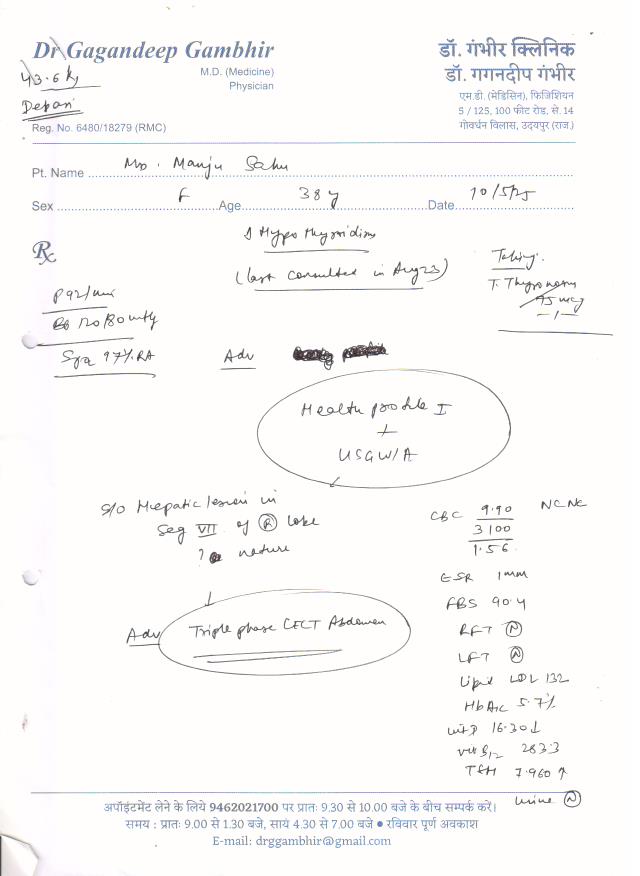 Dr Gagandeep Gambhir
M.D. (Medicine)
Physician
43.6 kg
Reg. No. 6480/18279 (RMC)
डॉ. गंभीर क्लिनिक
डॉ. गगनदीप गंभीर
एम.डी. (मेडिसिन), फिजिशियन
5 / 125, 100 फीट रोड, से. 14
गोवर्धन विलास, उदयपुर (राज.)
Pt. Name Mrs. Manju Sahu
Sex F Age 38 y Date 10/5/25
Rx
Hypothyroidism
(last consulted in Aug 23)
Taking:
T. Thyronorm
75 mcg
—1—
P 92/min
120/80 mmHg
Spo2 97% RA
Adv
Health profile I
+
USG W/A
S/O Hepatic lesion in
Seg VII of (R) lobe
? nature
Adv Triple phase CECT Abdomen
CBC 9.90 NCNC
3100
1.56
ESR 1mm
FBS 90.4
RFT (N)
LFT (N)
Lipid LDL 132
HbA1c 5.7%
Vit D 16.30↓
Vit B12 283.3
TSH 7.960 ↑
Urine (N)
अपॉइंटमेंट लेने के लिये 9462021700 पर प्रातः 9.30 से 10.00 बजे के बीच सम्पर्क करें।
समय : प्रातः 9.00 से 1.30 बजे, सायं 4.30 से 7.00 बजे ● रविवार पूर्ण अवकाश
E-mail: drggambhir@gmail.com